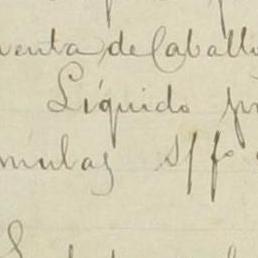 venta de Caball
Líquido pr
mulas s/fo